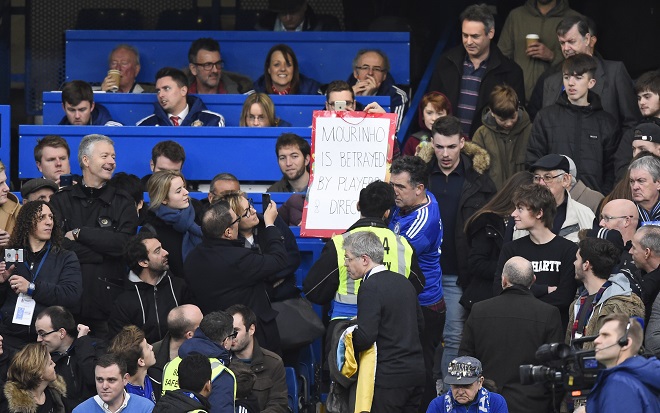 MOURINHO
IS BETRAYED
BY PLAYERS
& DIREC
HARTT
4